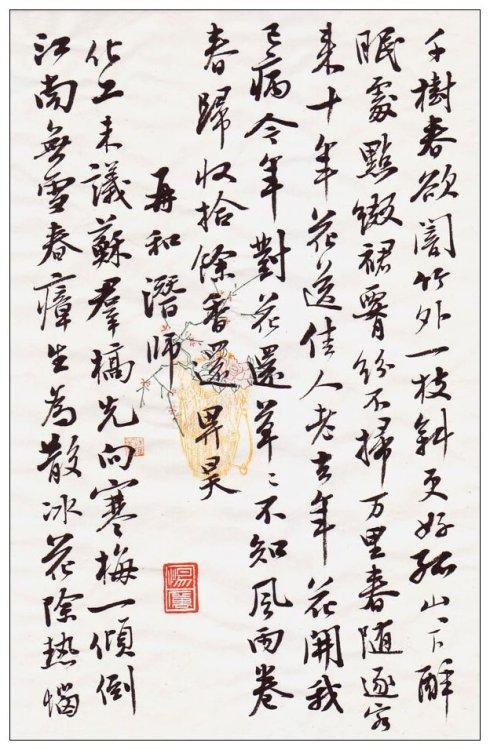 千樹春欲闇竹外一枝斜更好孤山〻下醉
眠處點綴裙腰紛不掃万里春随逐客
来十年花送佳人老去年花開我
已病今年對花還草〻不知風雨卷
春歸收拾餘香還畀昊
再和潛師
化工未議蘇羣槁先向寒梅一傾倒
江南無雪春瘴生為散冰花除熱惱